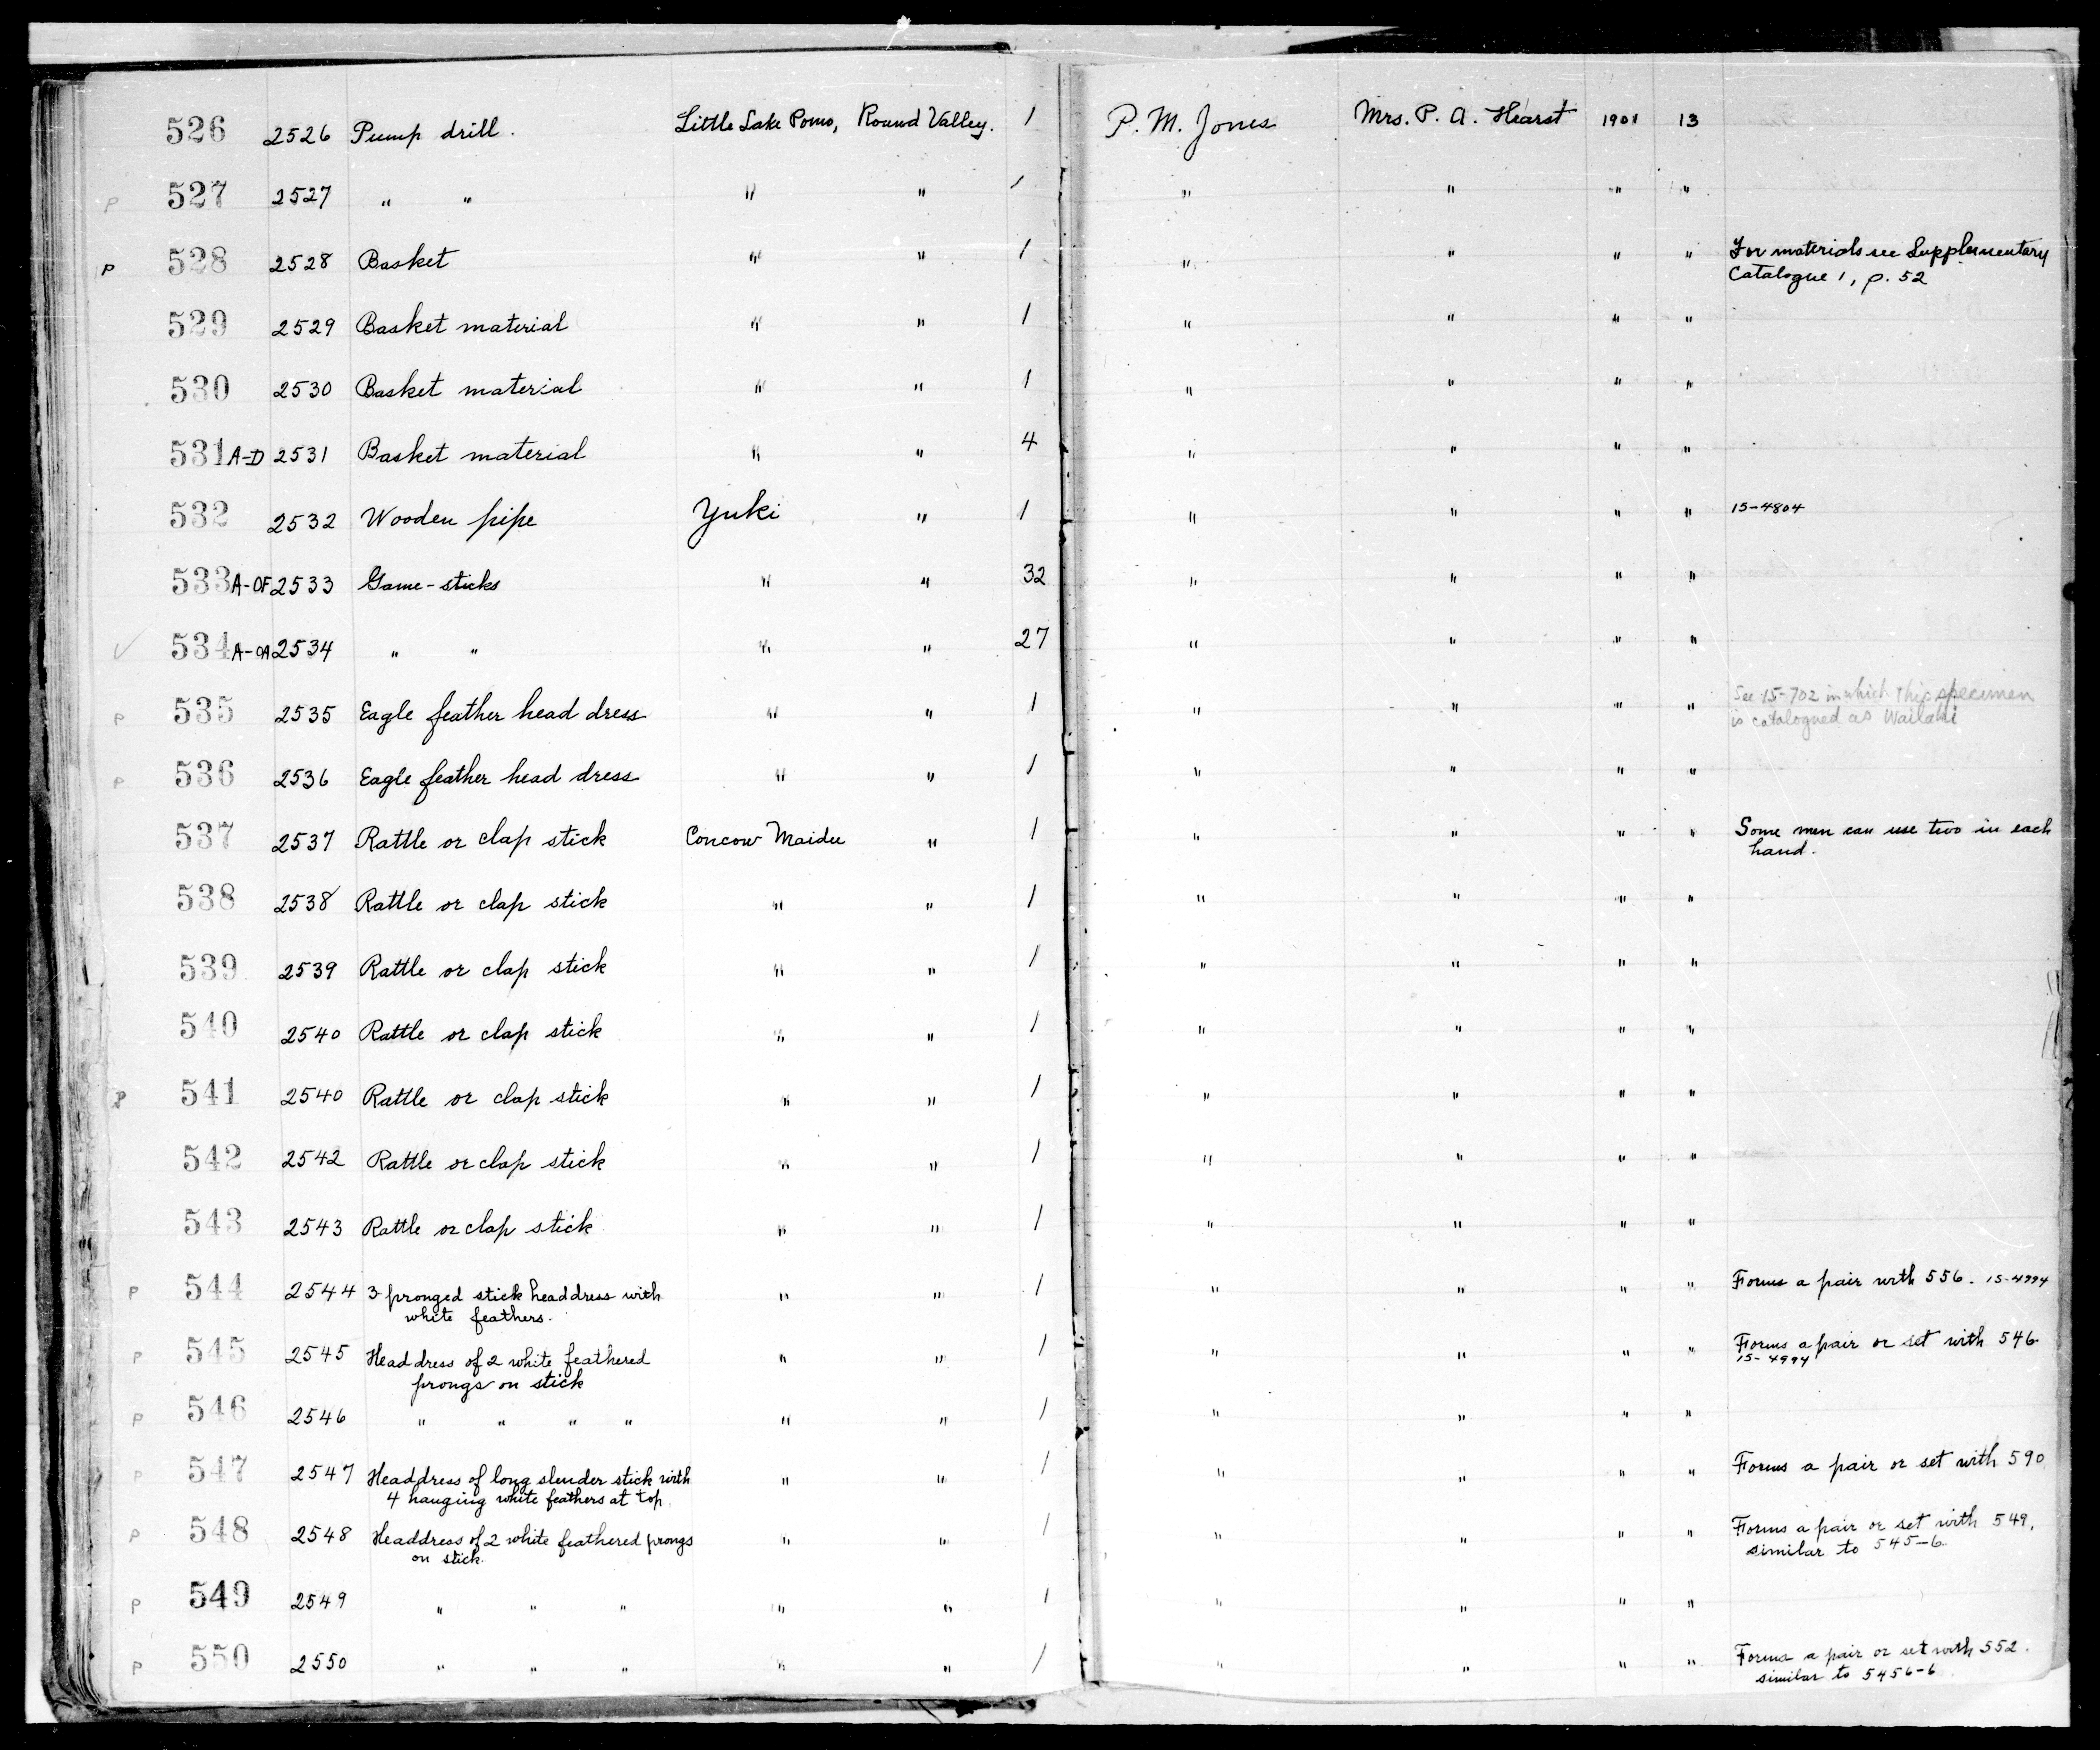 526 2526 Pump drill. Little Lake Pomo, Round Valley. 1 P. M. Jones Mrs. P. A. Hearst 1901 13
P 527 2527 " " " " 1 " " " "
P 528 2528 Basket " " 1 " " " " For materials see Supplementary
Catalogue 1, p. 52
529 2529 Basket material " " 1 " " " "
530 2530 Basket material " " 1 " " " "
531 A-D 2531 Basket material " " 4 " " " "
532 2532 Wooden pipe Yuki " 1 " " " " 15-4804
533 A-OF 2533 Game-sticks " " 32 " " " "
✓ 534 A-OA 2534 " " " " 27 " " " "
P 535 2535 Eagle feather head dress " " 1 " " " " See 15-702 in which this specimen
is catalogued as Wailaki
P 536 2536 Eagle feather head dress " " 1 " " " "
537 2537 Rattle or clap stick Concow Maidu " 1 " " " " Some men can use two in each
hand.
538 2538 Rattle or clap stick " " 1 " " " "
539 2539 Rattle or clap stick " " 1 " " " "
540 2540 Rattle or clap stick " " 1 " " " "
P 541 2540 Rattle or clap stick " " 1 " " " "
542 2542 Rattle or clap stick " " 1 " " " "
543 2543 Rattle or clap stick " " 1 " " " "
P 544 2544 3 pronged stick headdress with " " 1 " " " " Forms a pair with 556. 15-4994
white feathers.
P 545 2545 Headdress of 2 white feathered " " 1 " " " " Forms a pair or set with 546
prongs on stick 15-4994
P 546 2546 " " " " " " 1 " " " "
P 547 2547 Headdress of long slender stick with " " 1 " " " " Forms a pair or set with 590
4 hanging white feathers at top.
P 548 2548 Headdress of 2 white feathered prongs " " 1 " " " " Forms a pair or set with 549,
on stick. similar to 545-6.
P 549 2549 " " " " " 1 " " " "
P 550 2550 " " " " " 1 " " " " Forms a pair or set with 552.
similar to 5456-6